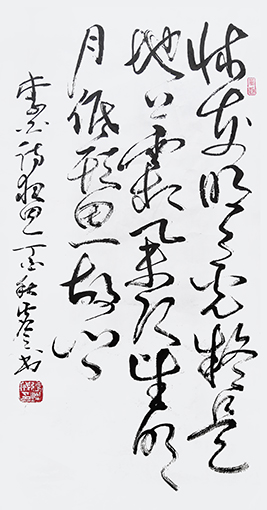 床前明月光疑是
地上霜举头望明
月低头思故乡
李白诗夜思丁酉秋书